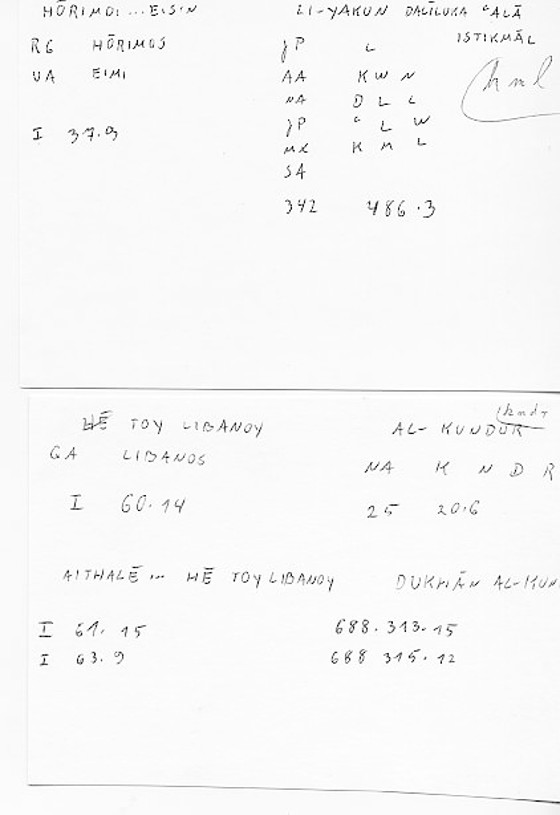 HŌRIMOI ... EISIN
RG HŌRIMOS
VA EIMI
I 37.9
LI-YAKUN DALĪLUKA ʿALĀ
ISTIKMĀL
jP L
AA K W N
NA D L L
jP ʿ L W
MX K M L
SA
kml
342 486.3
HĒ TOY LIBANOY
GA LIBANOS
I 60.14
kndr
AL-KUNDUR
NA K N D R
25 20.6
AITHALĒ ... HĒ TOY LIBANOY
I 61.15
I 63.9
DUKHĀN AL-KUN
688.313.15
688 315.12